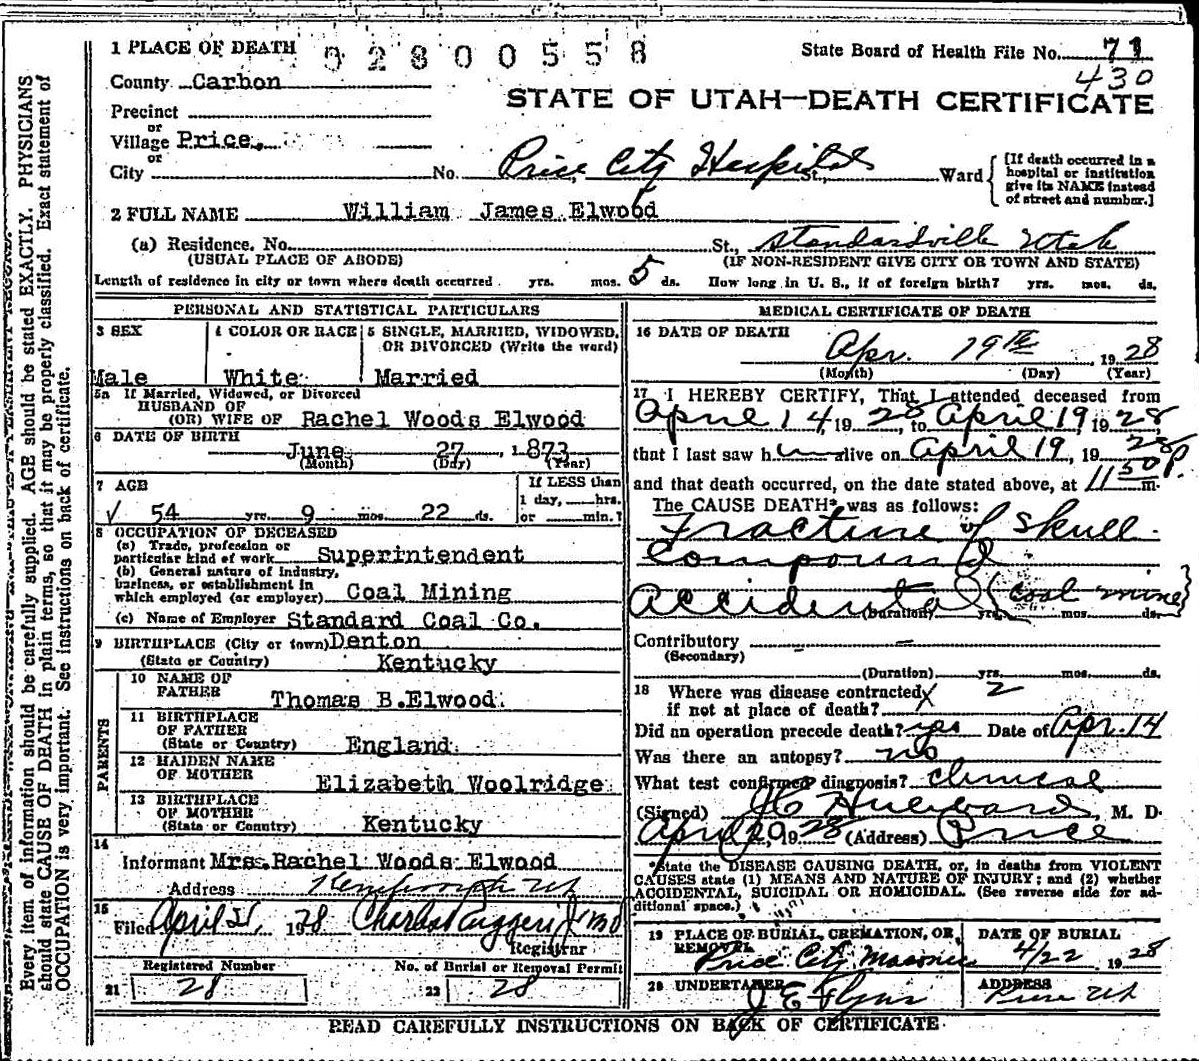 1 PLACE OF DEATH 92800558 State Board of Health File No. 71
County Carbon 430
STATE OF UTAH—DEATH CERTIFICATE
Precinct
or
Village Price.
or
City No. Price City Hospital St., Ward
[If death occurred in a
hospital or institution
give its NAME instead
of street and number.]
2 FULL NAME William James Elwood
(a) Residence. No. St., Standardville Utah
(USUAL PLACE OF ABODE) (IF NON-RESIDENT GIVE CITY OR TOWN AND STATE)
Length of residence in city or town where death occurred yrs. mos. 5 ds. How long in U. S., if of foreign birth? yrs. mos. ds.
PERSONAL AND STATISTICAL PARTICULARS
3 SEX 4 COLOR OR RACE 5 SINGLE, MARRIED, WIDOWED,
OR DIVORCED (Write the word)
Male White Married
5a If Married, Widowed, or Divorced
HUSBAND OF
(OR) WIFE OF Rachel Woods Elwood
6 DATE OF BIRTH
June 27 , 1873
(Month) (Day) (Year)
7 AGE If LESS than
1 day, hrs.
54 yrs. 9 mos. 22 ds. or min.?
8 OCCUPATION OF DECEASED
(a) Trade, profession or
particular kind of work Superintendent
(b) General nature of industry,
business, or establishment in
which employed (or employer) Coal Mining
(c) Name of Employer Standard Coal Co.
9 BIRTHPLACE (City or town) Denton
(State or Country) Kentucky
PARENTS
10 NAME OF
FATHER Thomas B.Elwood
11 BIRTHPLACE
OF FATHER
(State or Country) England
12 MAIDEN NAME
OF MOTHER Elizabeth Woolridge
13 BIRTHPLACE
OF MOTHER
(State or Country) Kentucky
14
Informant Mrs. Rachel Woods Elwood
Address Ut
15
Filed April 21, 1928 Charles Ruggeri MD
Registrar
Registered Number No. of Burial or Removal Permit
21 28 22 28
MEDICAL CERTIFICATE OF DEATH
16 DATE OF DEATH
Apr. 19th 1928
(Month) (Day) (Year)
17 I HEREBY CERTIFY, That I attended deceased from
April 14, 1928, to April 19, 1928,
that I last saw him alive on April 19, 1928
and that death occurred, on the date stated above, at 11 50 P. m.
The CAUSE DEATH* was as follows:
Fracture of Skull
Compound
Accidental (coal mine)
(Duration) yrs. mos. ds.
Contributory
(Secondary)
(Duration) yrs. mos. ds.
18 Where was disease contracted
if not at place of death? ?
Did an operation precede death? yes Date of Apr. 14
Was there an autopsy? no
What test confirmed diagnosis? clinical
(Signed) J C Hubbard, M. D.
April 20, 1928 (Address) Price
*State the DISEASE CAUSING DEATH, or, in deaths from VIOLENT
CAUSES state (1) MEANS AND NATURE OF INJURY; and (2) whether
ACCIDENTAL, SUICIDAL OR HOMICIDAL. (See reverse side for ad-
ditional space.)
19 PLACE OF BURIAL, CREMATION, OR, DATE OF BURIAL
REMOVAL
Price City Masonic 4/22 1928
20 UNDERTAKER ADDRESS
J E Flynn Price Ut
READ CAREFULLY INSTRUCTIONS ON BACK OF CERTIFICATE
Every item of information should be carefully supplied. AGE should be stated EXACTLY. PHYSICIANS
should state CAUSE OF DEATH in plain terms, so that it may be properly classified. Exact statement of
OCCUPATION is very important. See instructions on back of certificate.